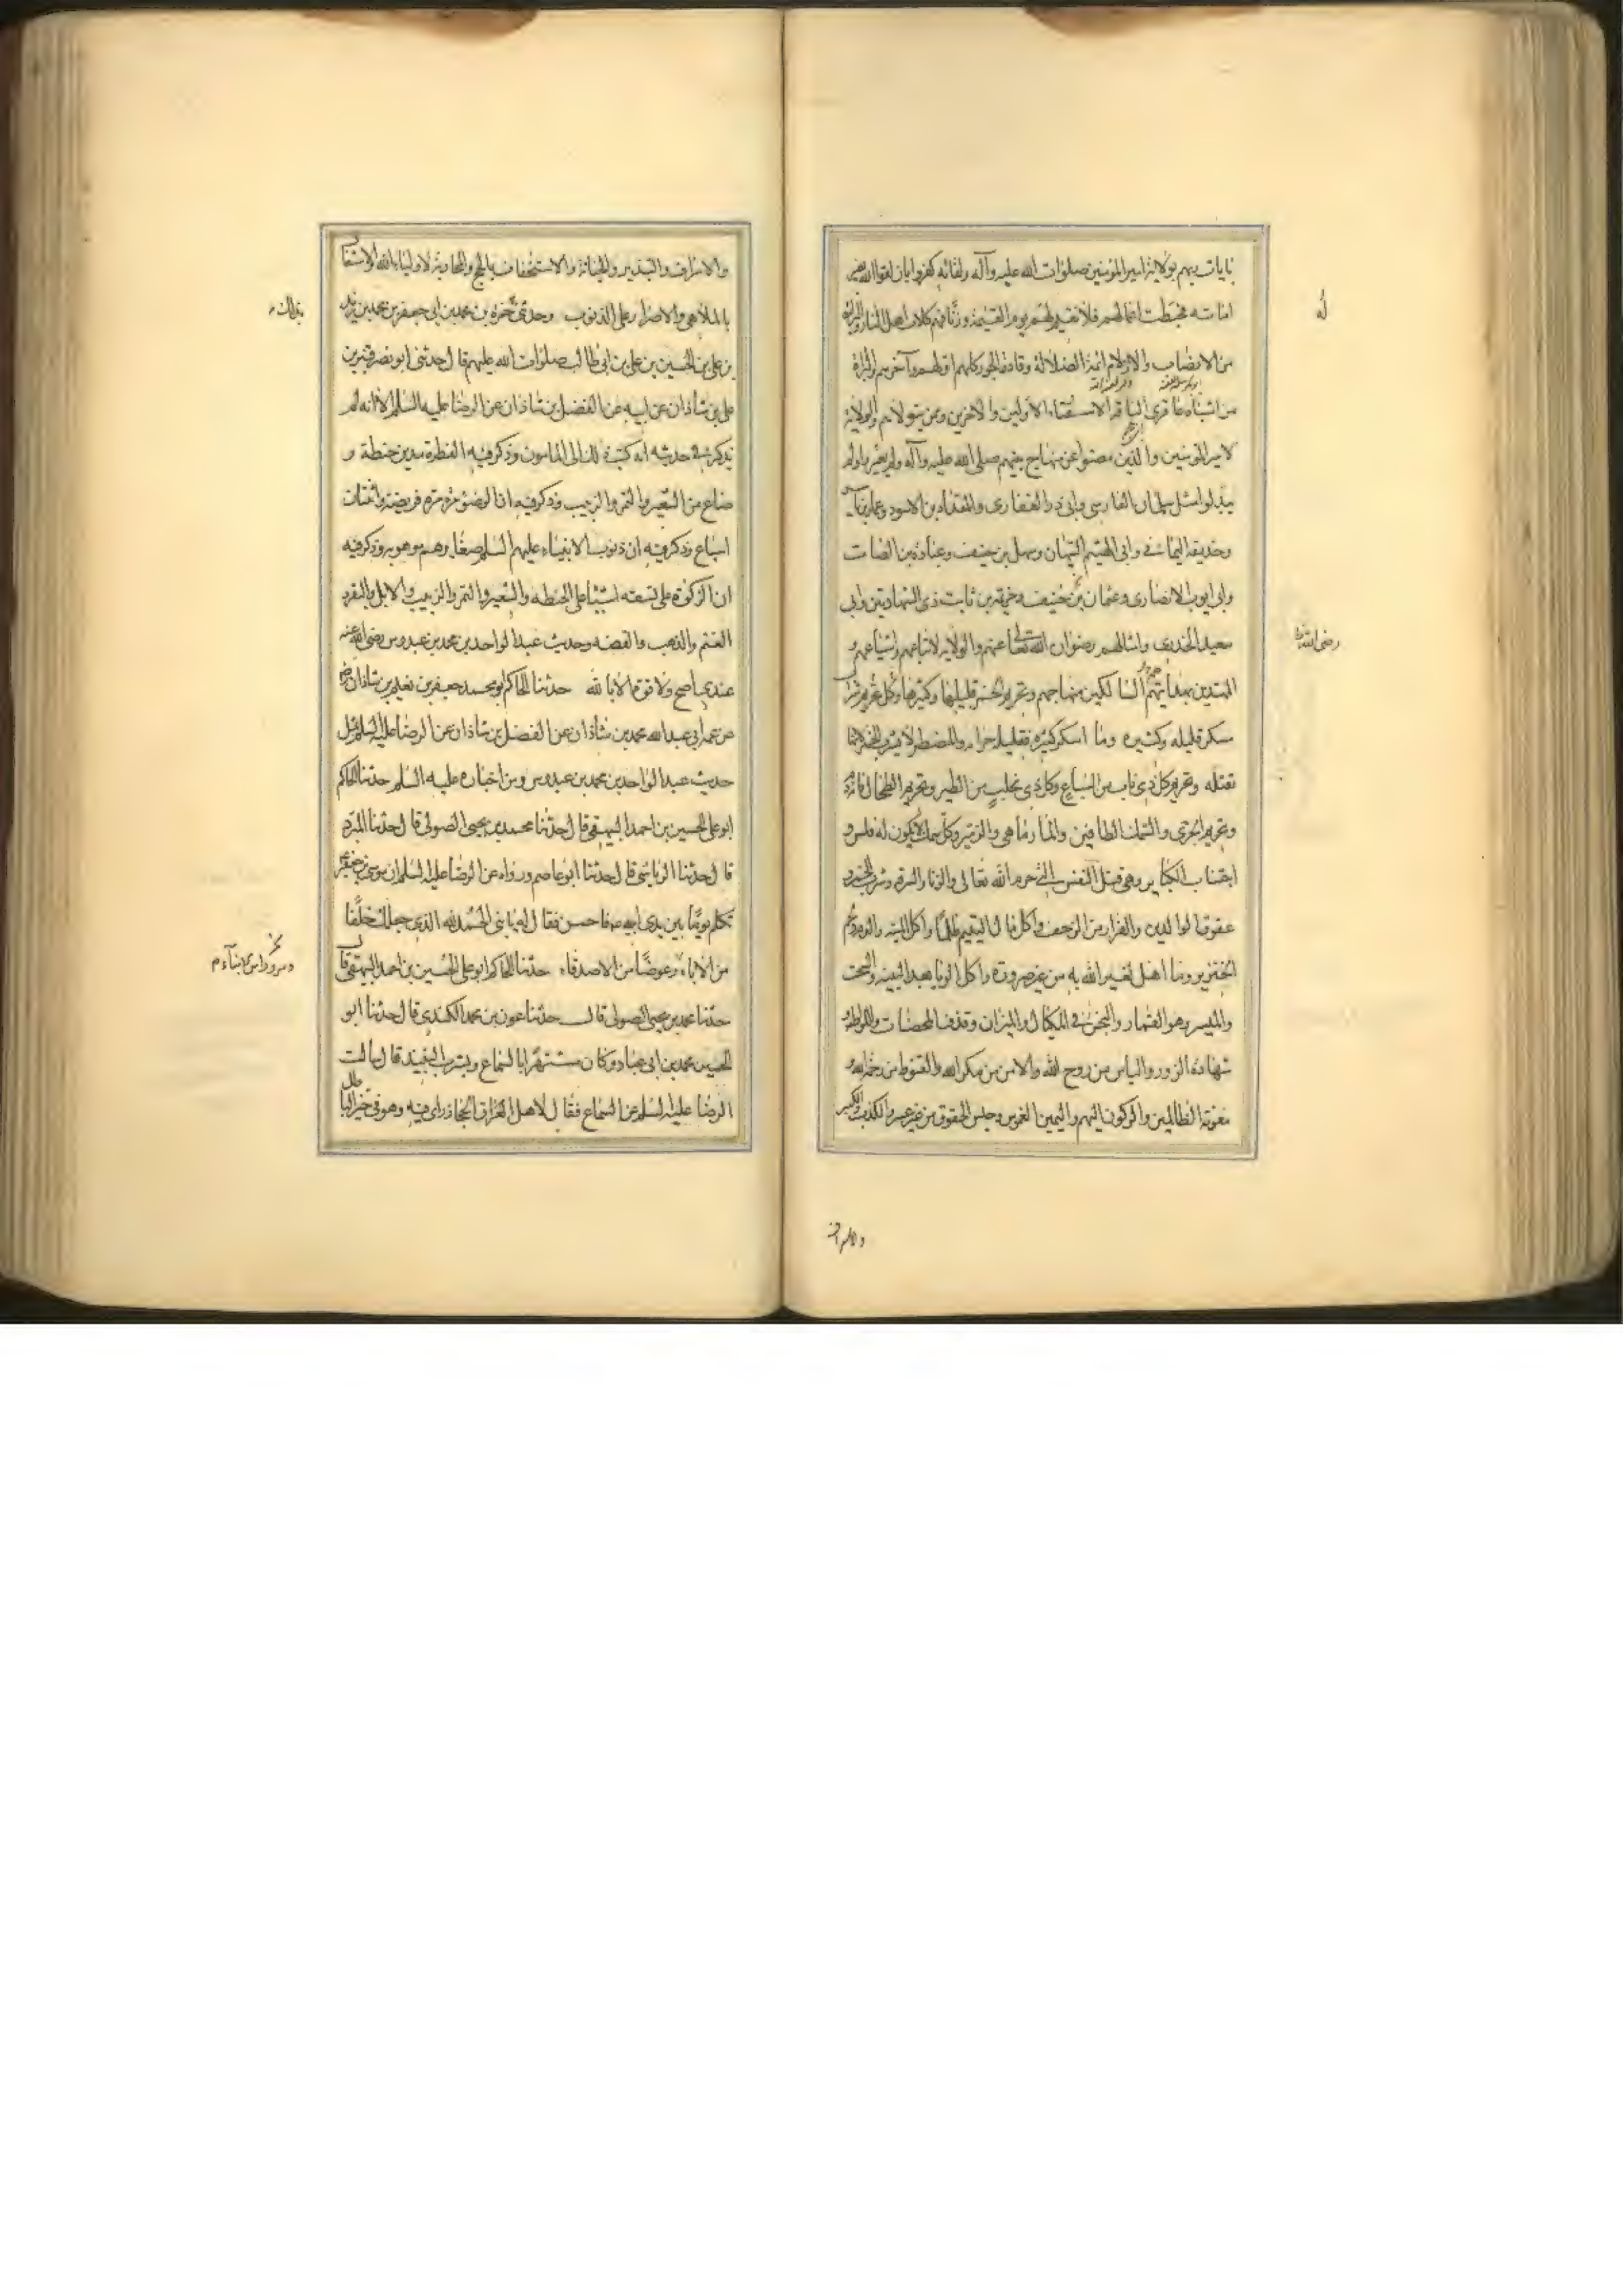 بايات ربهم بولاية امير المؤمنين صلوات الله عليه وآله ولقائه كفروا بان لقوا الله بغير
امامته فحبطت اعمالهم فلا نقيم لهم يوم القيمة وزنا فهم كلاب اهل النار والبرائة
له
من الانصاب والازلام ائمة الضلالة وقادة الجور كلهم اولهم وآخرهم والبراة
من اشباه عاقرى الناقة الاشقياء الاولين والاخرين وممن يتولاهم والولاية
لامير المؤمنين والذين مضوا على منهاج نبيهم صلى الله عليه وآله ولم يغيروا ولم
يبدلوا مثل سلمان الفارسى وابى ذر الغفارى والمقداد بن الاسود وعمار بن ياسر
وحذيفة اليمانى وابى الهيثم التيهان وسهل بن حنيف وعبادة بن الصامت
وابى ايوب الانصارى وعثمان بن حنيف وخزيمة بن ثابت ذى الشهادتين وابى
سعيد الخدرى وامثالهم رضوان الله تعالى عنهم والولاية لاتباعهم واشياعهم و
رضى الله عنه
المهتدين بهداهم السالكين منهاجهم وتحريم الخمر قليلها وكثيرها وكل شراب
مسكر قليله وكثيره وما اسكر كثيره فقليله حرام والمضطر لا يشرب الخمر لانها
تقتله وتحريم كل ذى ناب من السباع وكل ذى مخلب من الطير وتحريم الطحال فانه دم
وتحريم الجرى والسمك الطافى والمارماهى والزمير وكل سمك لا يكون له فلس و
اجتناب الكبائر وهى قتل النفس التى حرم الله تعالى والزنا والسرقة وشرب الخمر و
عقوق الوالدين والفرار من الزحف واكل مال اليتيم ظلما واكل الميته والدم ولحم
الخنزير وما اهل لغير الله به من غير ضرورة واكل الربا بعد البينه والسحت
والميسر وهو القمار والبخس فى المكيال والميزان وقذف المحصنات واللواط و
شهادة الزور والياس من روح الله والامن من مكر الله والقنوط من رحمة الله و
معونة الظالمين والركون اليهم واليمين الغموس وحبس الحقوق من غير عسر والكذب والكبر
والاسراف
والاسراف والتبذير والخيانة والاستخفاف بالحج والمحاربة لاولياء الله والاشتغال
بالملاهى والاصرار على الذنوب وحدثنى حمزة بن محمد بن ابى جعفر بن محمد بن زيد
بذلك
بن على بن الحسين بن على بن ابى طالب صلوات الله عليهم قال حدثنى ابو نصر قنبر بن
على بن شاذان عن ابيه عن الفضل بن شاذان عن الرضا عليه السلم الا انه لم
يذكر فى حديثه انه كتب ذلك الى المامون وذكر فيه الفطرة مدين حنطة و
صاع من الشعير والتمر والزبيب وذكر فيه ان الوضوء مرة مرة فريضة واثنتان
اسباغ وذكر فيه ان ذنوب الانبياء عليهم السلم صغايرهم موهوبة وذكر فيه
ان الزكوة على تسعة اشياء على الحنطه والشعير والتمر والزبيب والابل والبقر و
الغنم والذهب والفضه وحديث عبد الواحد بن محمد بن عبدوس رضى الله عنه
عندى اصح ولا قوة الا بالله حدثنا الحاكم ابو محمد جعفر بن نعيم بن شاذان رض
عن عمه ابى عبد الله محمد بن شاذان عن الفضل بن شاذان عن الرضا عليه السلم مثل
حديث عبد الواحد بن محمد بن عبدوس ومن اخباره عليه السلم حدثنا الحاكم
ابو على الحسين بن احمد البيهقى قال حدثنا محمد بن يحيى الصولى قال حدثنا المبرد
قال حدثنا الرياشى قال حدثنا ابو عاصم ورواه عن الرضا عليه السلم ان موسى بن جعفر
تكلم يوما بين يدى ابيه ع فاحسن فقال له يا بنى الحمد لله الذى جعلك خلفا
من الاباء وعوضا من الاصدقاء حدثنا الحاكم ابو على الحسين بن احمد البيهقى قال
وسرورا من الابناء
حدثنا محمد بن يحيى الصولى قال حدثنا عون بن محمد الكندى قال حدثنا ابو
الحسين محمد بن ابى عباد وكان مشتهرا بالسماع وبشرب النبيذ قال سالت
الرضا عليه السلم عن السماع فقال لاهل العراق الحجاز راى فيه وهو فى حيز الباطل